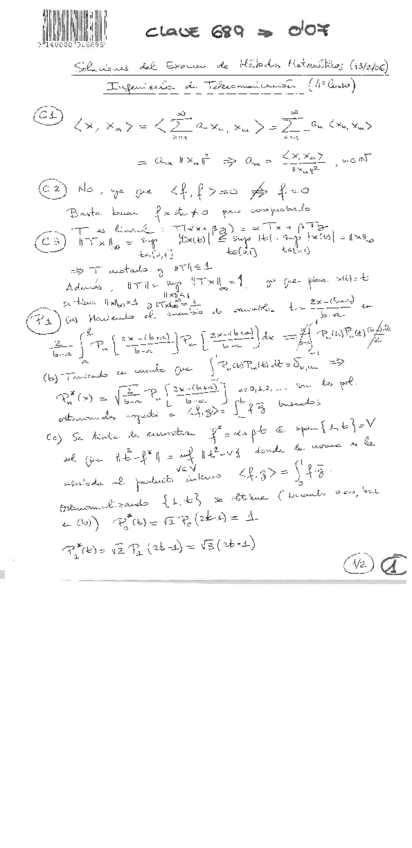 CLAVE 689 ⇒ 007
Soluciones del Examen de Métodos Matemáticos (13/2/06)
Ingeniería de Telecomunicación (4º Curso)
C1 ⟨x, x_m⟩ = ⟨∑_{n=1}^∞ a_n x_n, x_m⟩ = ∑_{n=1}^∞ a_n ⟨x_n, x_m⟩
= a_m ‖x_m‖² ⇒ a_m = ⟨x, x_m⟩ / ‖x_m‖², m∈ℕ
C2 No, ya que ⟨f, f⟩ = 0 ⇏ f = 0
Basta tomar f = ≠ 0 para comprobarlo
C3 T es lineal: T(αx + βy) = αTx + βTy
‖Tx‖_∞ = sup |tx(t)| ≤ sup |t| · sup |x(t)| = ‖x‖_∞
⇒ T acotado y ‖T‖ ≤ 1
Además, ‖T‖ = sup ‖Tx‖_∞ = 1, ya que para x(t) = t
se tiene ‖x‖_∞ = 1 y ‖Tx‖_∞ = 1
P1 (a) Haciendo el cambio de variable t = (2x-(b+a))/(b-a) en
2/(b-a) ∫_a^b P_n[(2x-(b+a))/(b-a)] P_m[(2x-(b+a))/(b-a)] dx = ∫_{-1}^1 P_n(t) P_m(t)
(b) Teniendo en cuenta que ∫_{-1}^1 P_n(t) P_m(t) dt = δ_{n,m} ⇒
P_n^*(x) = √(2/(b-a)) P_n[(2x-(b+a))/(b-a)] n=0,1,2,... son los pol.
ortonormales respecto a ⟨f,g⟩ = ∫_a^b f ḡ buscados
(c) Se trata de encontrar f^* = α + βt ∈ span{1, t} = V
tal que ‖t² - f^*‖ = inf_{v∈V} ‖t² - v‖ donde la norma es la
asociada al producto interno ⟨f,g⟩ = ∫_0^1 f ḡ.
Ortonormalizando {1, t} se obtiene (tomando a=0, b=1
en (b)) P_0^*(t) = √2 P_0(2t-1) = 1
P_1^*(t) = √2 P_1(2t-1) = √3 (2t-1)
1/2 1